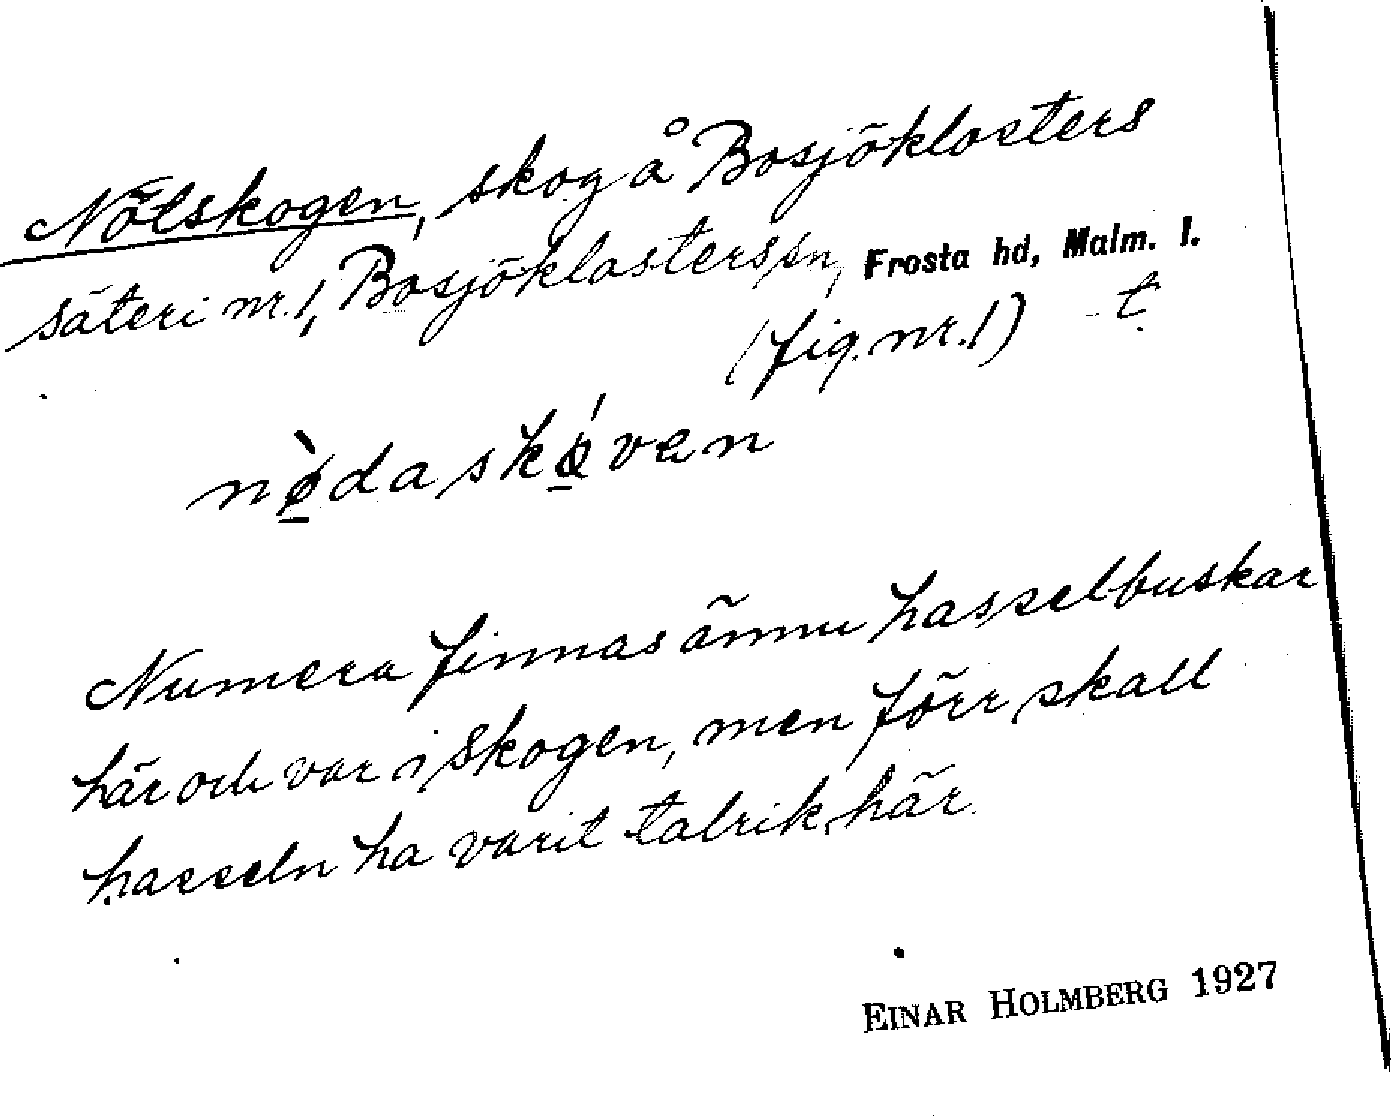 Nötskogen, skog å Bosjöklosters
säteri nr. 1, Bosjöklosters sn, Frosta hd, Malm. l.
(fig. nr. 1) t.
nø̀daskǿven
Numera finnas ännu hasselbuskar
här och var i skogen, men förr skall
hasseln ha varit talrik här.
EINAR HOLMBERG 1927